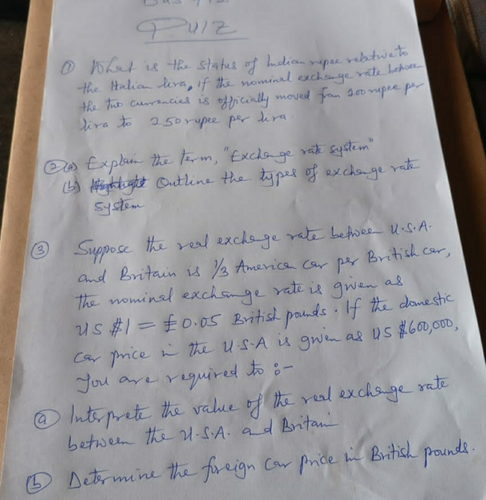 QUIZ
① What is the status of Indian rupee relative to
the Italian lira, if the nominal exchange rate between
the two currencies is officially moved from 200 rupee per
lira to 250 rupee per lira
② (a) Explain the term, "Exchange rate system"
(b) Outline the types of exchange rate
system
③ Suppose the real exchange rate between U.S.A.
and Britain is 1/3 American car per British car,
the nominal exchange rate is given as
US $1 = £0.05 British pounds. If the domestic
car price in the U.S.A is given as US $600,000,
you are required to :-
ⓐ Interprete the value of the real exchange rate
between the U.S.A. and Britain
ⓑ Determine the foreign car price in British pounds.